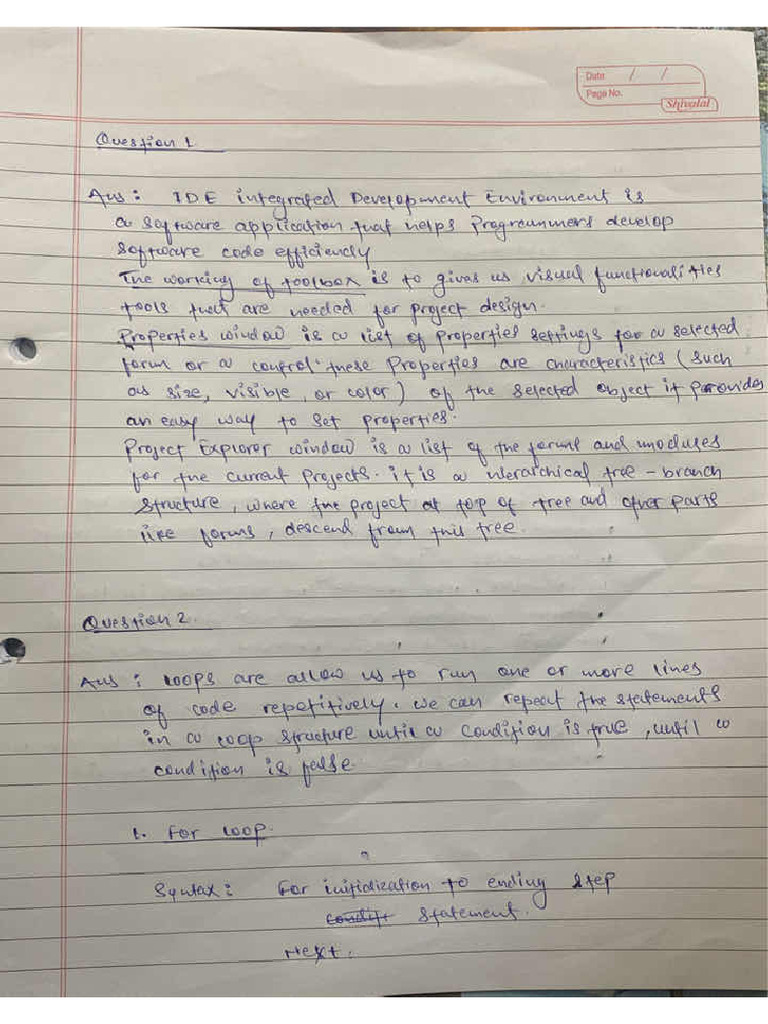 Date / /
Page No.
Shivalal
Question 1
Ans : IDE integrated Development Environment is
a software application that helps Programmers develop
software code efficiently
The working of toolbox is to gives us visual functionalities
tools that are needed for project design.
Properties window is a list of properties settings for a selected
form or a control. these Properties are characteristics (such
as size, visible, or color) of the selected object it provides
an easy way to set properties.
Project Explorer window is a list of the forms and modules
for the current projects. it is a hierarchical tree - branch
structure, where the project at top of tree and other parts
like forms, descend from this tree.
Question 2.
Ans : loops are allow us to run one or more lines
of code repetitively. we can repeat the statements
in a loop structure until a condition is true, until a
condition is false.
1. For loop.
Syntax : For initidization to ending step
statement.
Next.